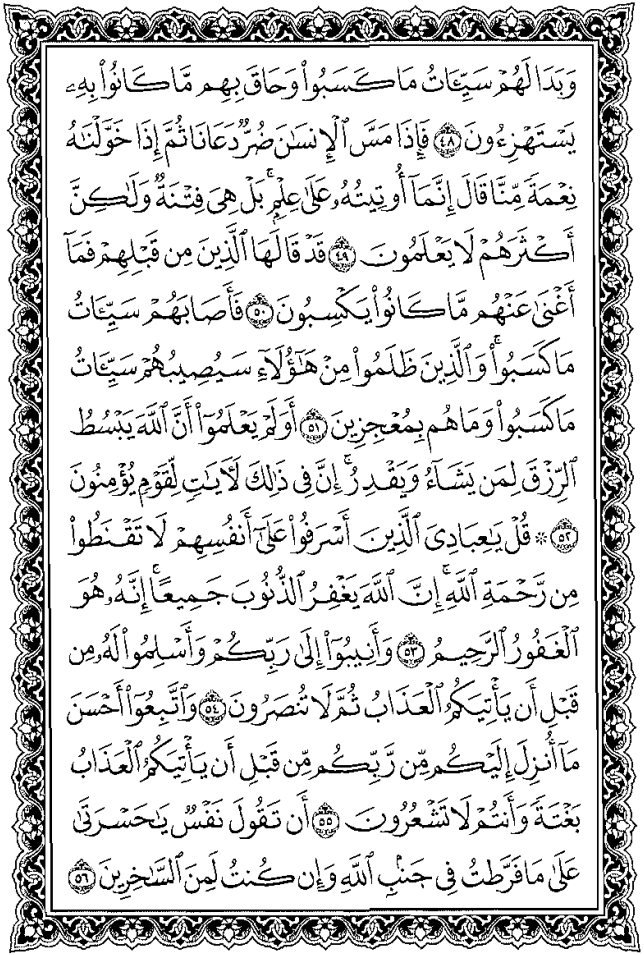 وَبَدَا لَهُمْ سَيِّـَٔاتُ مَا كَسَبُوا۟ وَحَاقَ بِهِم مَّا كَانُوا۟ بِهِۦ
يَسْتَهْزِءُونَ ٤٨ فَإِذَا مَسَّ ٱلْإِنسَٰنَ ضُرٌّ دَعَانَا ثُمَّ إِذَا خَوَّلْنَٰهُ
نِعْمَةً مِّنَّا قَالَ إِنَّمَآ أُوتِيتُهُۥ عَلَىٰ عِلْمٍۭ ۚ بَلْ هِىَ فِتْنَةٌ وَلَٰكِنَّ
أَكْثَرَهُمْ لَا يَعْلَمُونَ ٤٩ قَدْ قَالَهَا ٱلَّذِينَ مِن قَبْلِهِمْ فَمَآ
أَغْنَىٰ عَنْهُم مَّا كَانُوا۟ يَكْسِبُونَ ٥٠ فَأَصَابَهُمْ سَيِّـَٔاتُ
مَا كَسَبُوا۟ ۚ وَٱلَّذِينَ ظَلَمُوا۟ مِنْ هَٰٓؤُلَآءِ سَيُصِيبُهُمْ سَيِّـَٔاتُ
مَا كَسَبُوا۟ وَمَا هُم بِمُعْجِزِينَ ٥١ أَوَلَمْ يَعْلَمُوٓا۟ أَنَّ ٱللَّهَ يَبْسُطُ
ٱلرِّزْقَ لِمَن يَشَآءُ وَيَقْدِرُ ۚ إِنَّ فِى ذَٰلِكَ لَـَٔايَٰتٍ لِّقَوْمٍ يُؤْمِنُونَ
٥٢ ۞ قُلْ يَٰعِبَادِىَ ٱلَّذِينَ أَسْرَفُوا۟ عَلَىٰٓ أَنفُسِهِمْ لَا تَقْنَطُوا۟
مِن رَّحْمَةِ ٱللَّهِ ۚ إِنَّ ٱللَّهَ يَغْفِرُ ٱلذُّنُوبَ جَمِيعًا ۚ إِنَّهُۥ هُوَ
ٱلْغَفُورُ ٱلرَّحِيمُ ٥٣ وَأَنِيبُوٓا۟ إِلَىٰ رَبِّكُمْ وَأَسْلِمُوا۟ لَهُۥ مِن
قَبْلِ أَن يَأْتِيَكُمُ ٱلْعَذَابُ ثُمَّ لَا تُنصَرُونَ ٥٤ وَٱتَّبِعُوٓا۟ أَحْسَنَ
مَآ أُنزِلَ إِلَيْكُم مِّن رَّبِّكُم مِّن قَبْلِ أَن يَأْتِيَكُمُ ٱلْعَذَابُ
بَغْتَةً وَأَنتُمْ لَا تَشْعُرُونَ ٥٥ أَن تَقُولَ نَفْسٌ يَٰحَسْرَتَىٰ
عَلَىٰ مَا فَرَّطتُ فِى جَنۢبِ ٱللَّهِ وَإِن كُنتُ لَمِنَ ٱلسَّٰخِرِينَ ٥٦